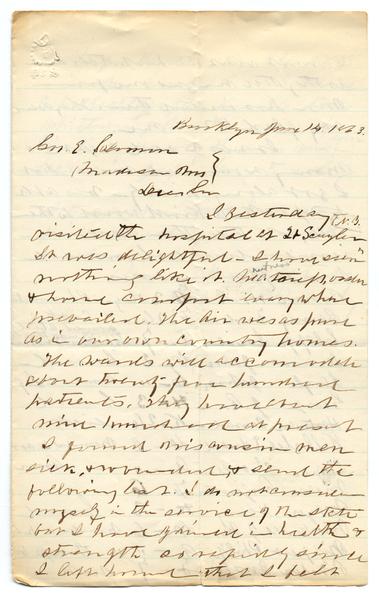 Brooklyn June 14, 1863.
Gov. E. Salomon
Madison Wis
Dear Sir
I Yesterday
visited the hospital at
It was delightful - I have seen
nothing like it. neatness order
& home comfort everywhere
prevailed. The air was as pure
as in our own country homes.
The wards will accomodate
about twenty five hundred
patients, they have but
nine hundred at present
I found Wisconsin men
sick, & wounded, & send the
following list. I do not consider
myself in the service of the state
but I have gained in health &
strength so rapidly since
I left home that I felt